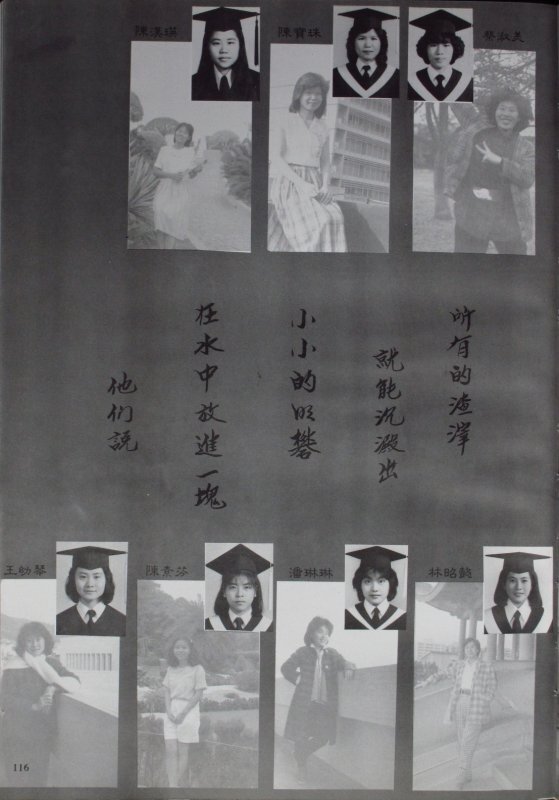 陳漢瑛
陳寶珠
蔡淑美
他们說
在水中放進一塊
小小的明礬
就能沉澱出
所有的渣澤
王幼琴
陳素芬
潘琳琳
林昭懿
116